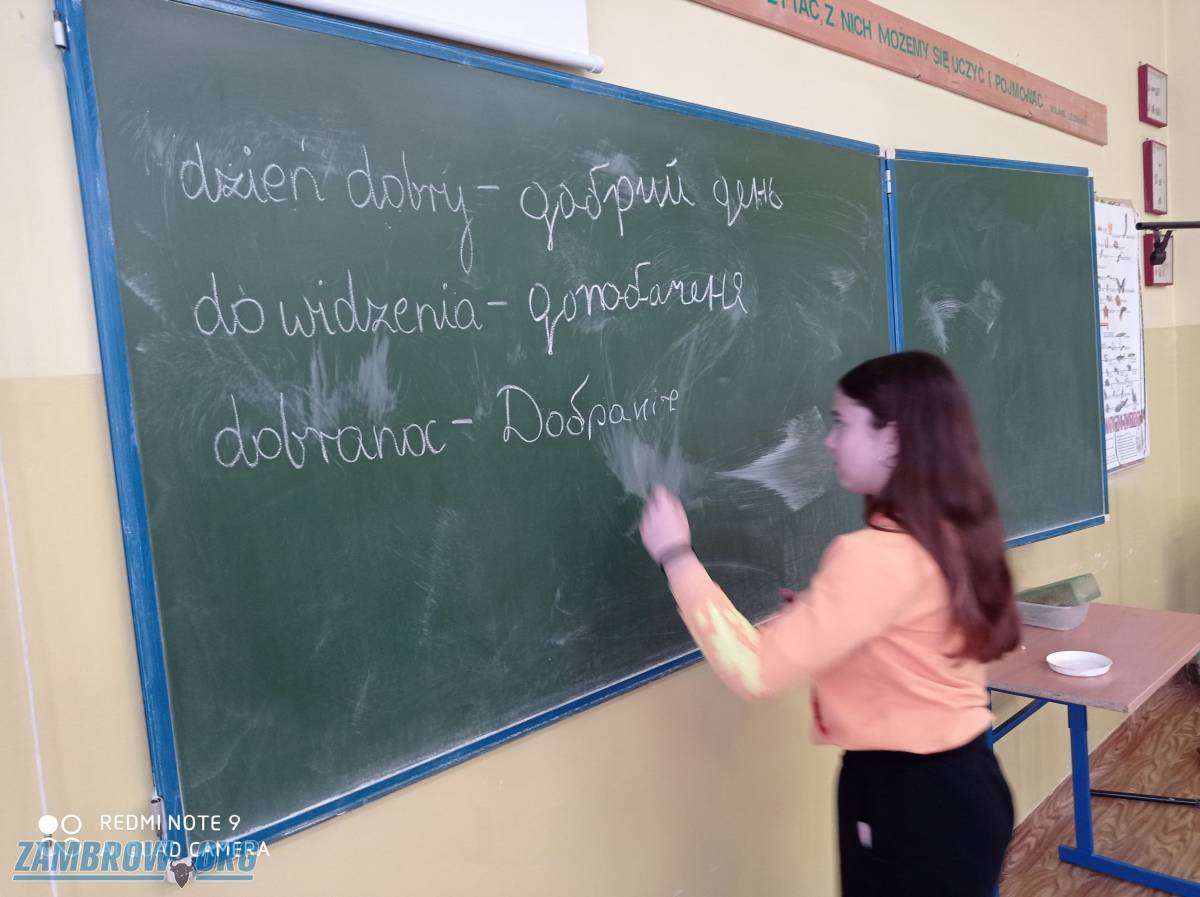 CZYTAĆ, Z NICH MOŻEMY SIĘ UCZYĆ I POJMOWAĆ
dzień dobry - добрий день
do widzenia - допобаченя
dobranoc - Добраніч
REDMI NOTE 9
AI QUAD CAMERA
ZAMBROW.ORG